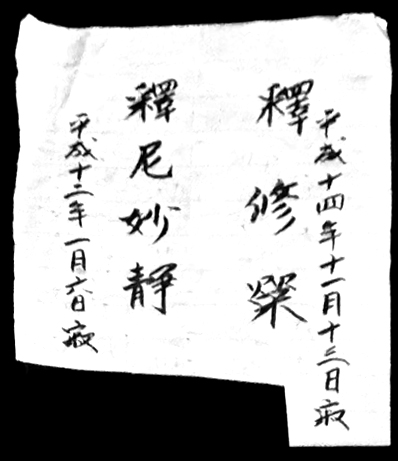 平成十四年十一月十三日寂
釋修榮
釋尼妙静
平成十二年一月六日寂